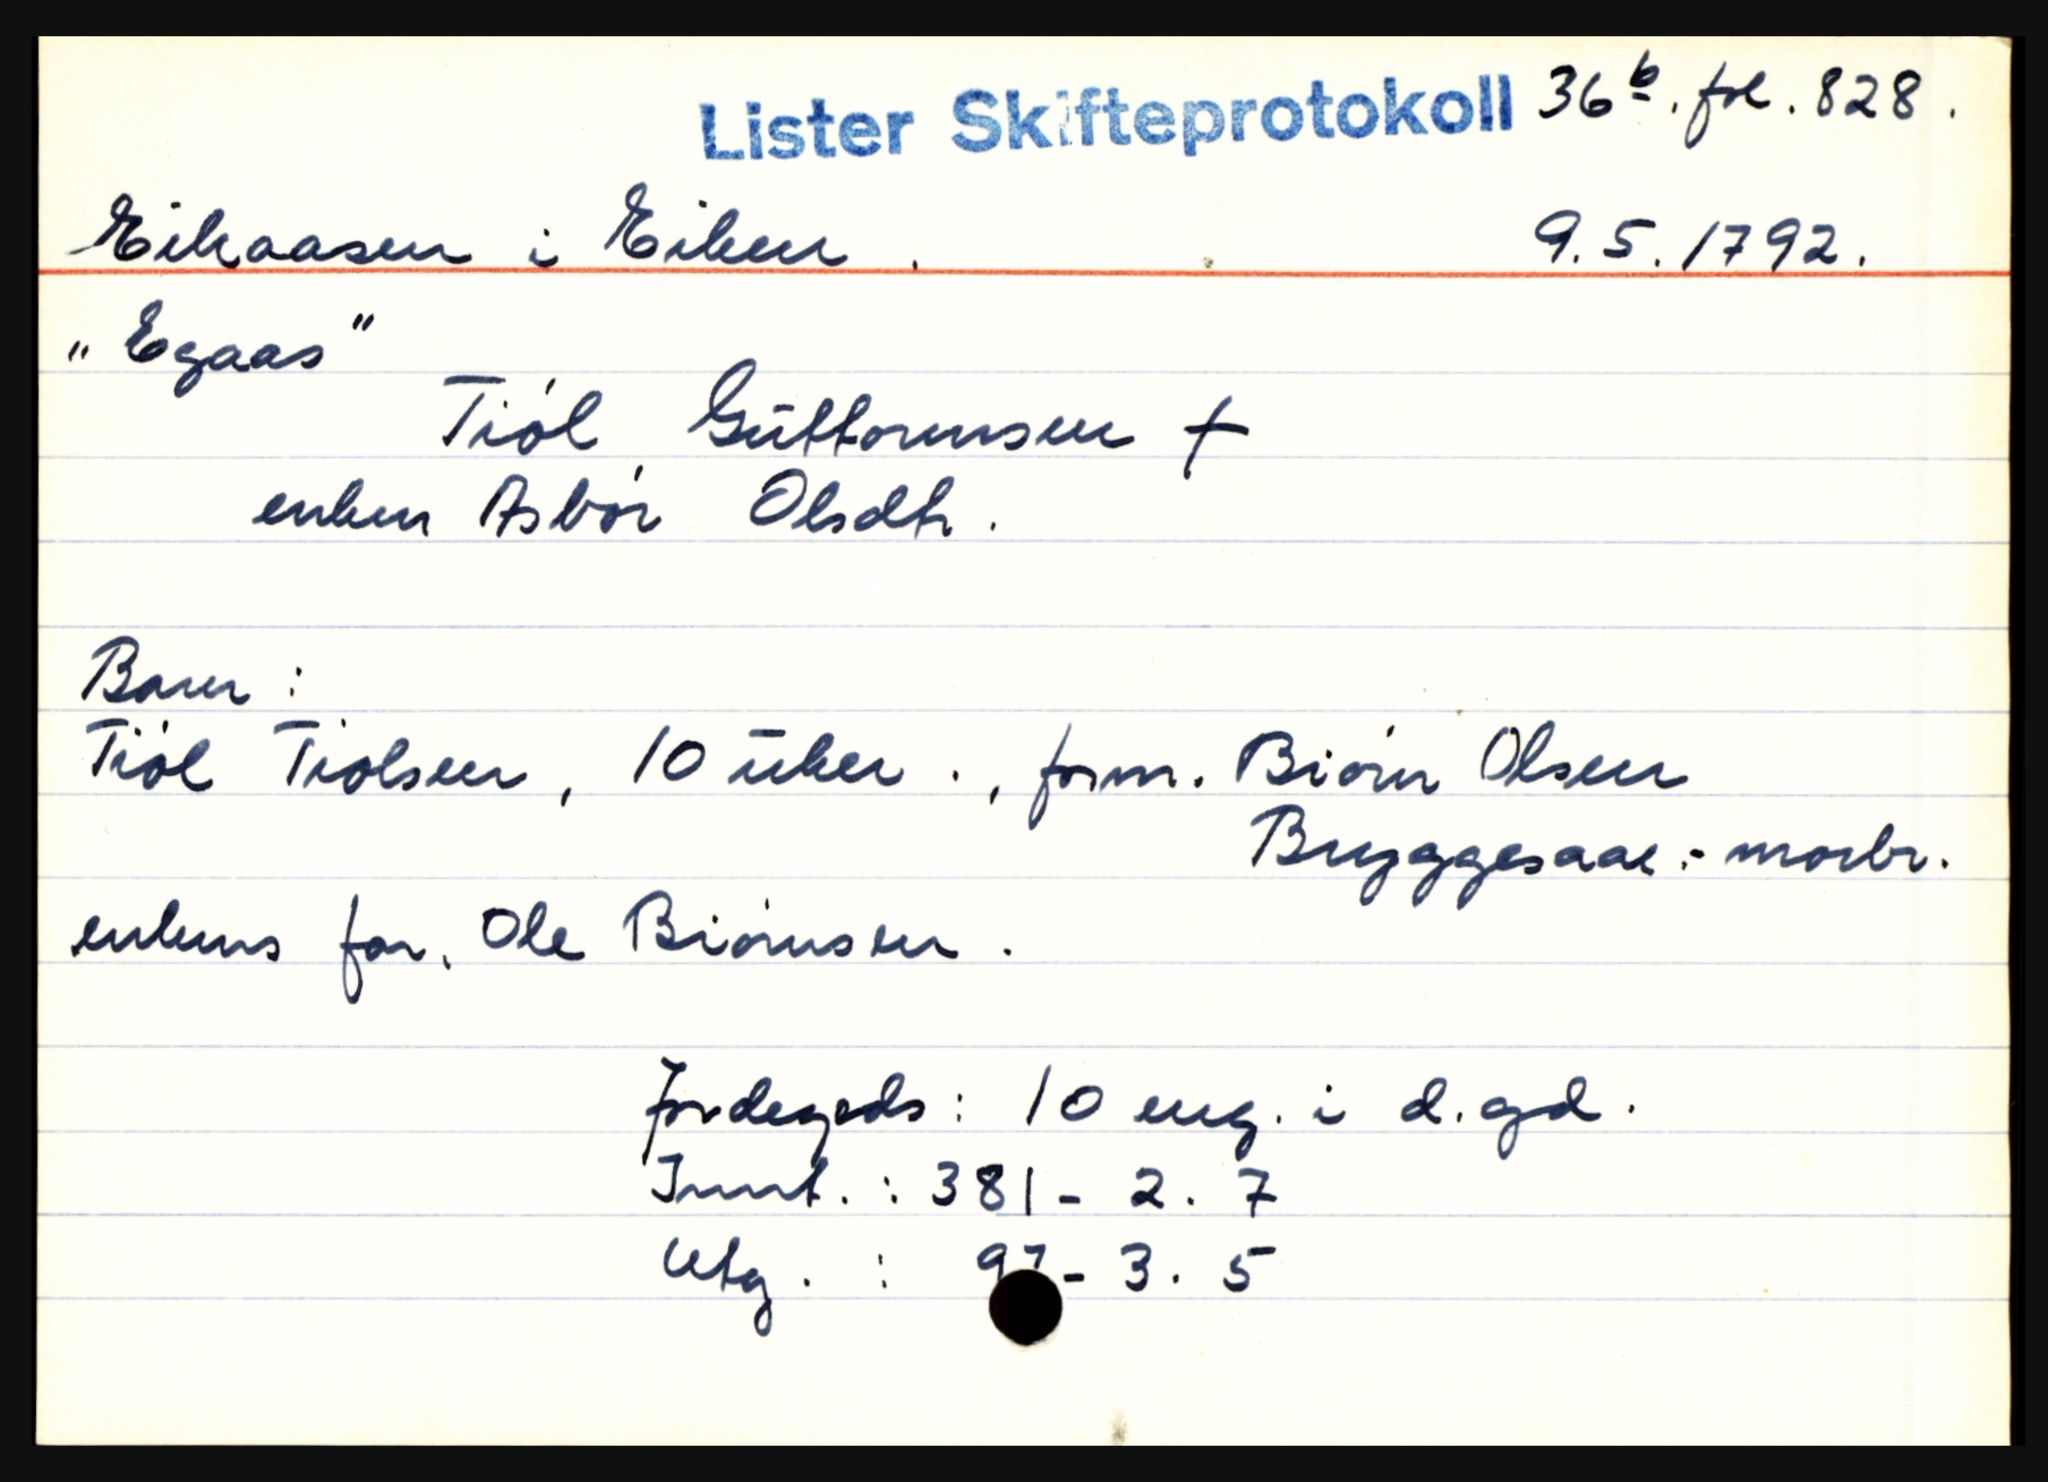 Lister Skifteprotokoll 36b. fol. 828.
Eikaasen i Eiken. 9.5.1792.
„Egaas"
Tiól Gūttormsen +
enken Asbór Olsdtr.
Barn:
Tiól Tiólsen, 10 ūker., form. Biórn Olsen
Bryggesaae.- morbr.
enkens far, Ole Biórnsen.
Jordegods: 10 eng. i d. gd.
Innt.: 381 - 2. 7
Utg. : 97 - 3. 5